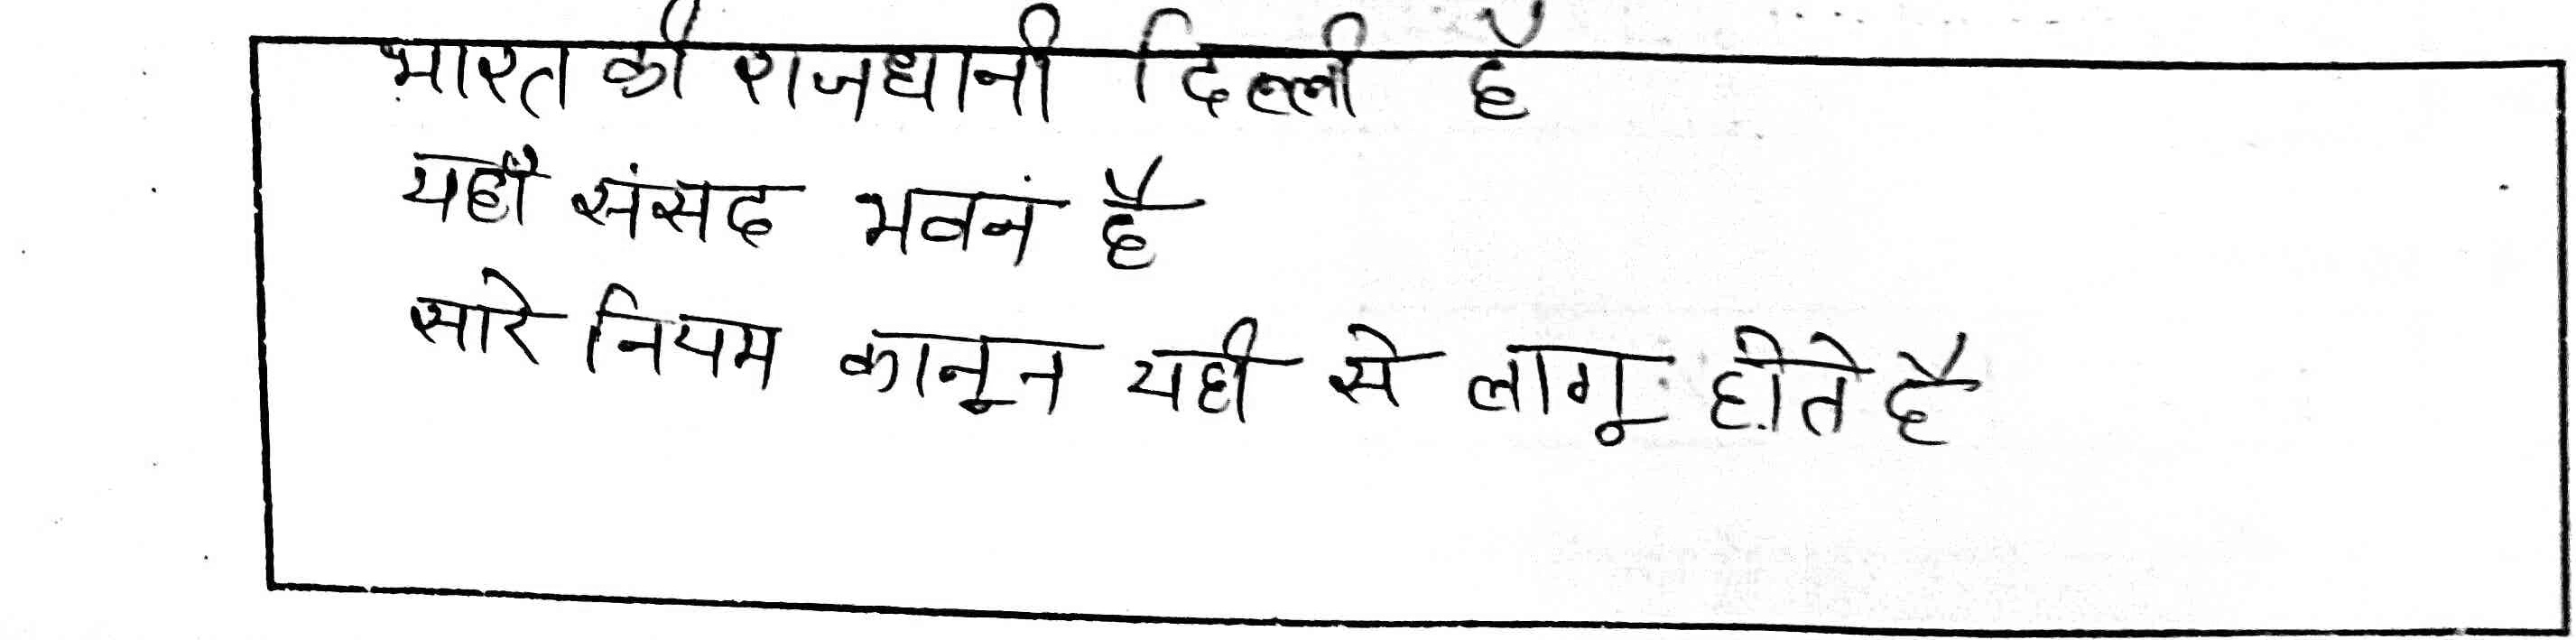 भारत की राजधानी दिल्ली है
यहाँ संसद भवनं है
सारे नियम कानून यही से लागू होते है